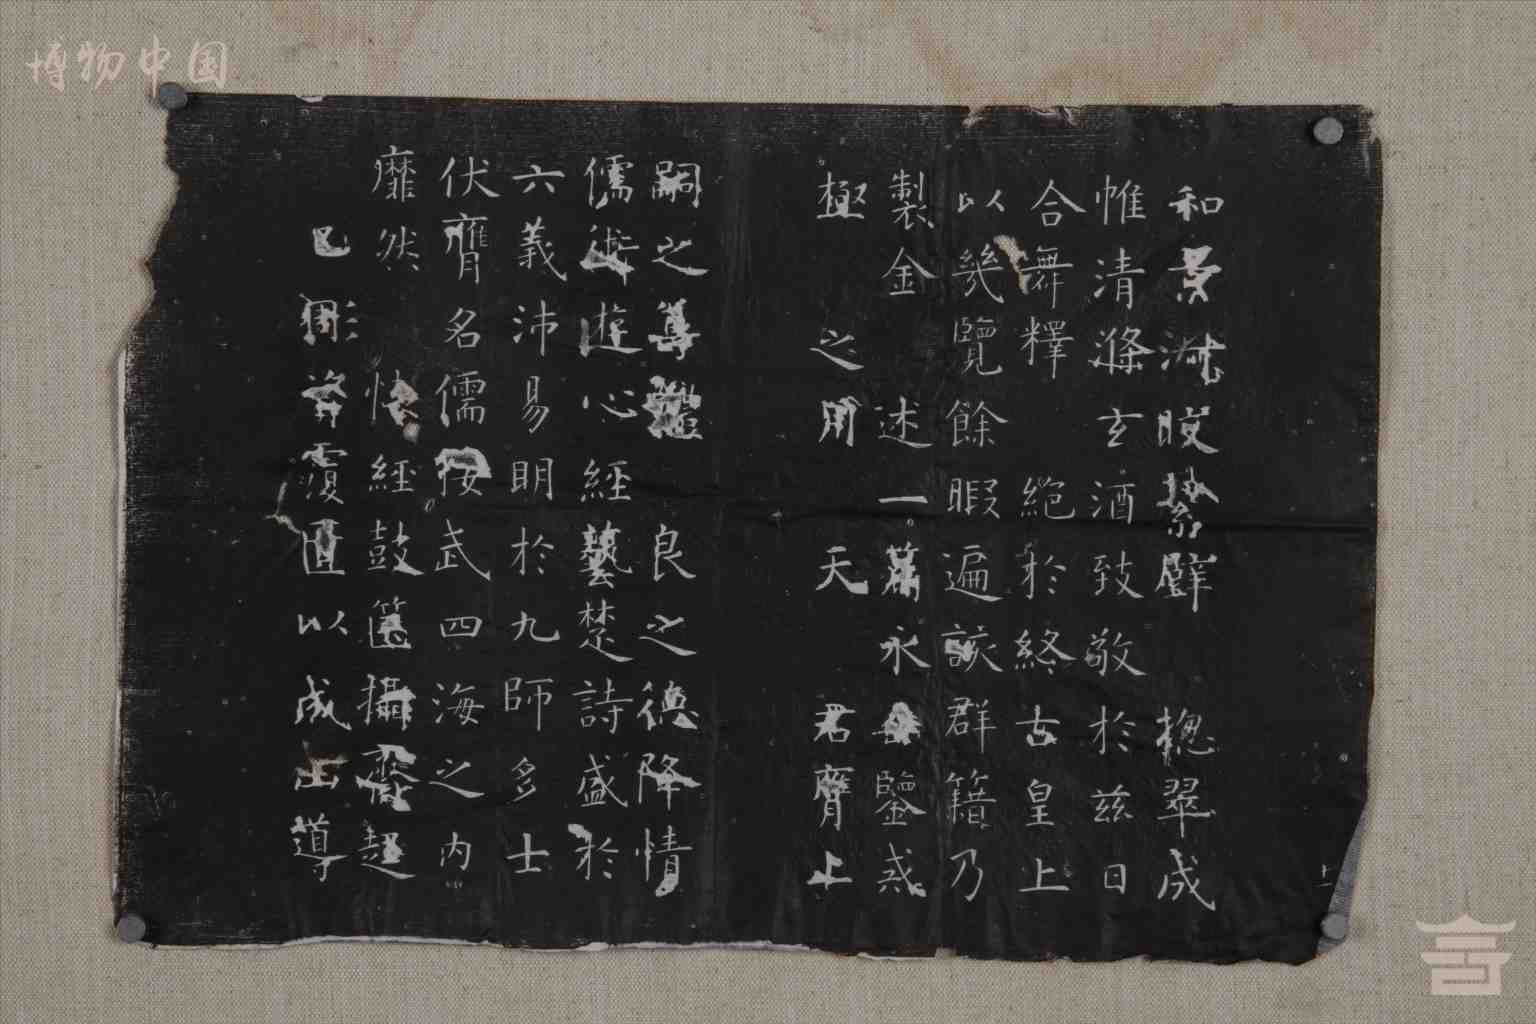 博物中国
和景淑睃黎辟 揔翠成
帷清滌玄酒致敬於兹日
合舞釋 絶於終古皇上
以幾覽餘暇遍該群籍乃
製金 述一 永 鑒惑
極 之用 天 君膺上
嗣之尊 良之德降情
儒術遊心經藝楚詩盛於
六義沛易明於九師多士
伏膺名儒接武四海之内
靡然 快經鼓篋攝齋趍
已彫 覆匱以成山導